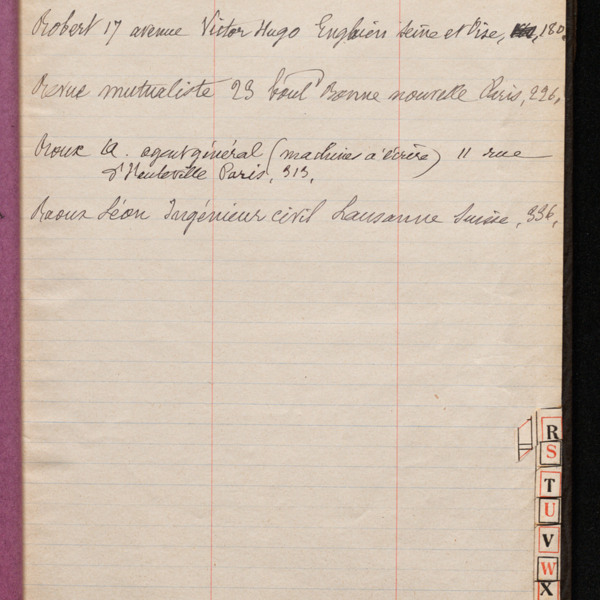 Robert 17 avenue Victor Hugo Enghien Seine et Oise, 180.
Revue mutualiste 23 boul^d Bonne nouvelle Paris, 226.
Roux A. agent général (machines à écrire) 11 rue
d'Hauteville Paris, 313.
Raoux Léon Ingénieur civil Lausanne Suisse, 336.
R
S
T
U
V
W
X